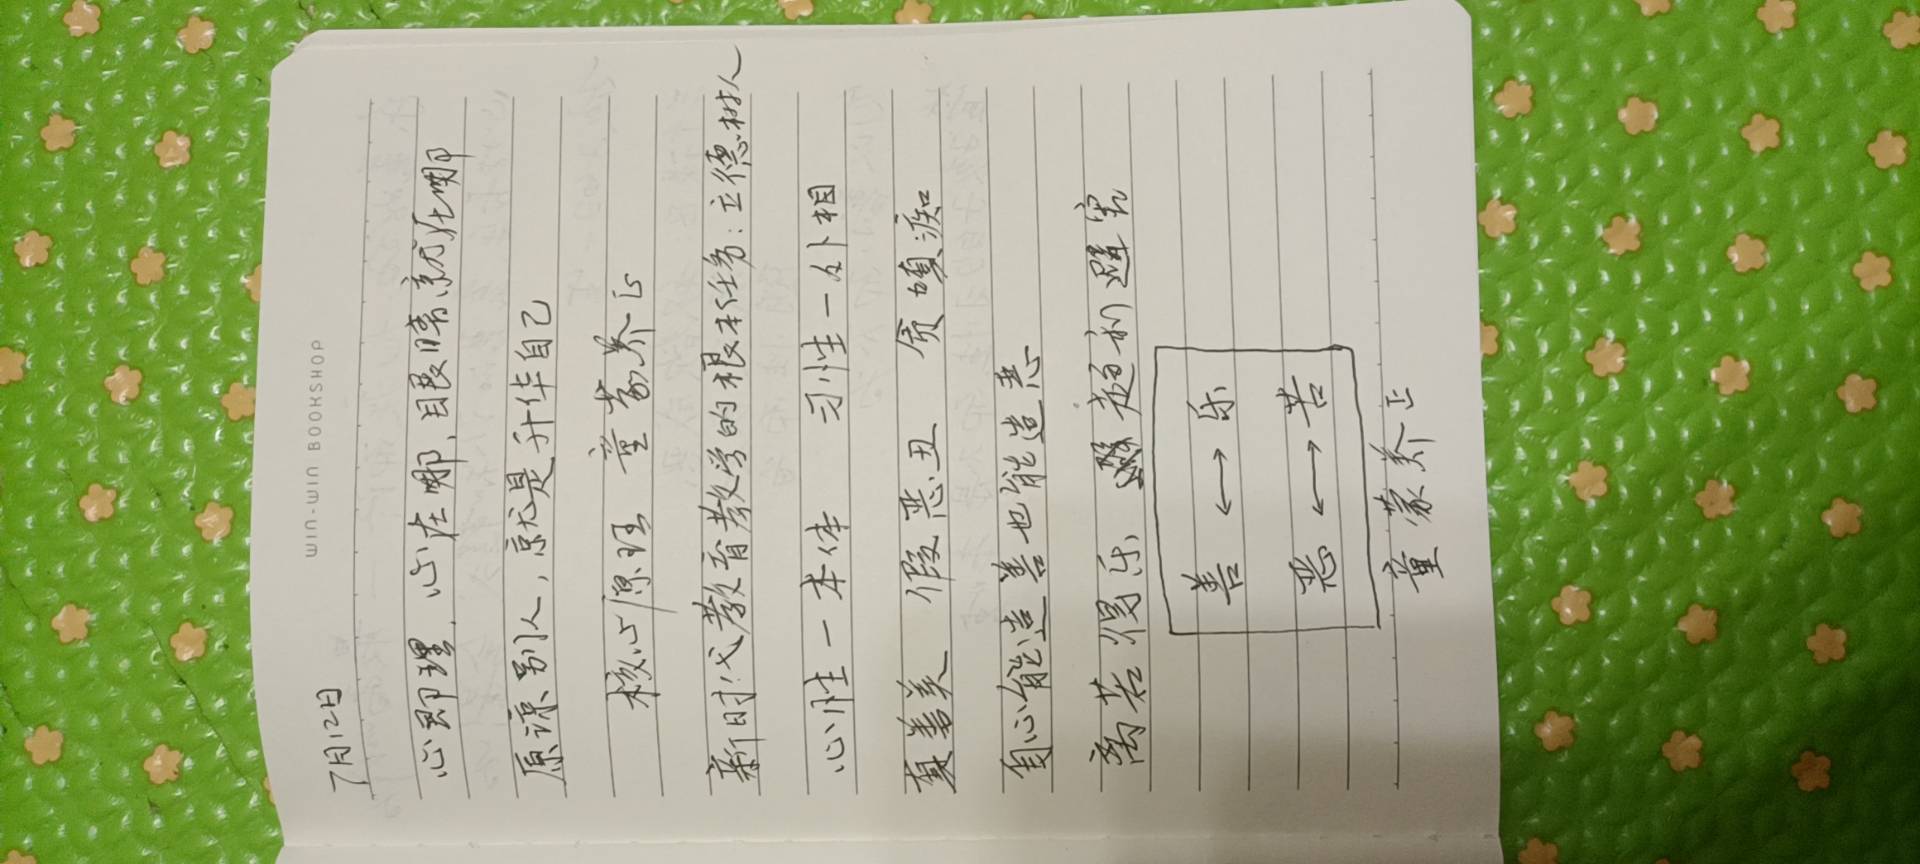 WIN-WIN BOOKSHOP
7月12日
心即理,心在哪,眼睛就在哪
原谅别人,就是升华自己
核心原理 童蒙养正
新时代教育教学的根本任务:立德树人
心性一本体 习性一外相
真善美 假恶丑 贪嗔痴
自心能造善也能造恶
离苦得乐, 趋利避害
善 ←→ 乐
恶 ←→ 苦
童蒙养正